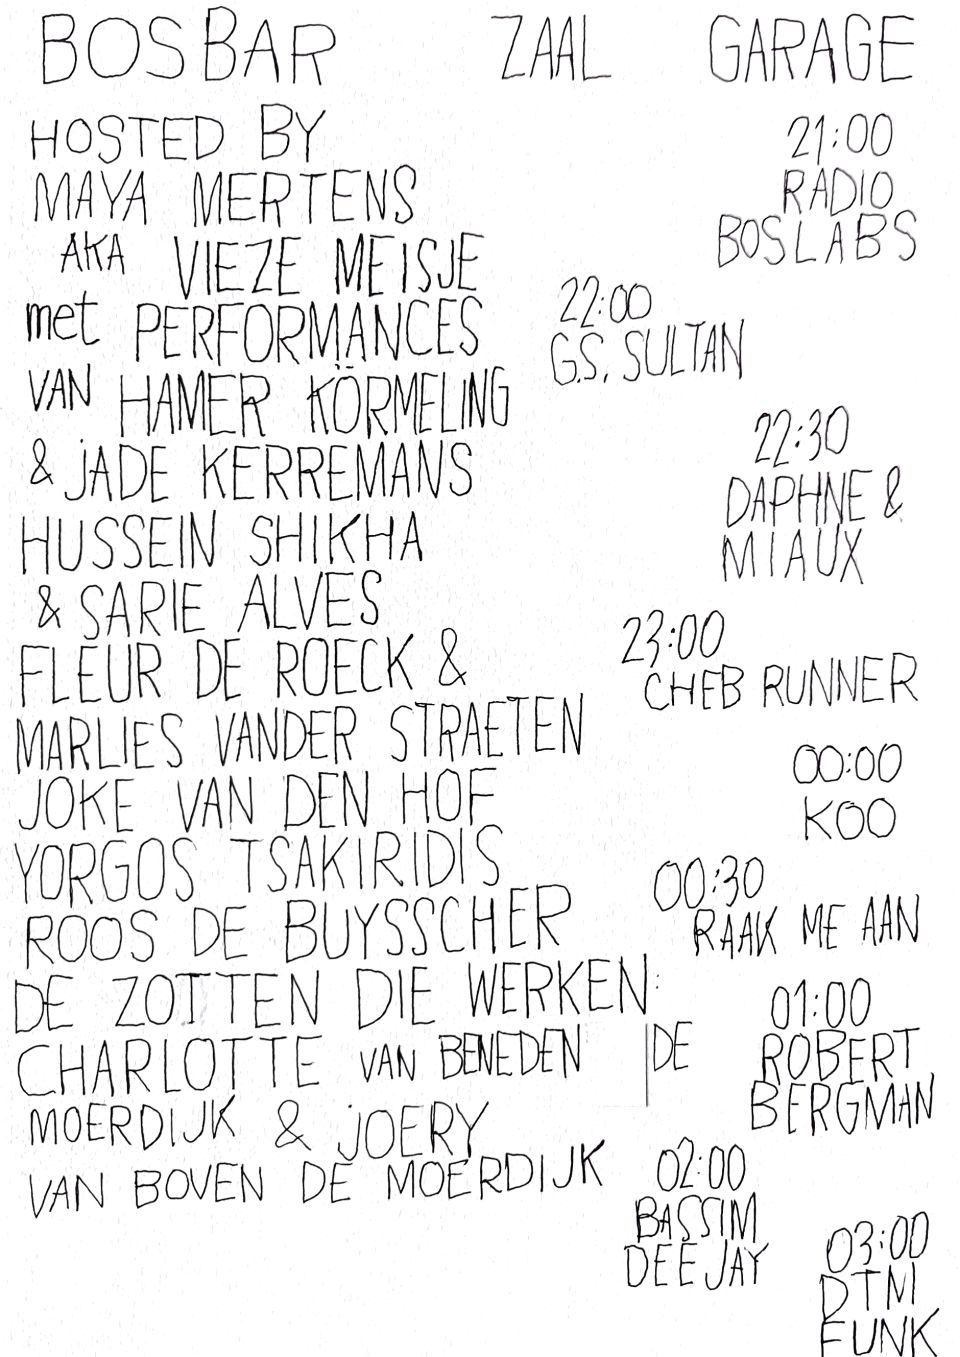 BOSBAR
HOSTED BY
MAYA MERTENS
AKA VIEZE MEISJE
met PERFORMANCES
VAN HAMER KÖRMELING
& JADE KERREMANS
HUSSEIN SHIKHA
& SARIE ALVES
FLEUR DE ROECK &
MARLIES VANDER STRAETEN
JOKE VAN DEN HOF
YORGOS TSAKIRIDIS
ROOS DE BUYSSCHER
DE ZOTTEN DIE WERKEN:
CHARLOTTE VAN BENEDEN | DE
MOERDIJK & JOERY
VAN BOVEN DE MOERDIJK
ZAAL
GARAGE
21:00
RADIO
BOSLABS
22:00
G.S. SULTAN
22:30
DAPHNE &
MIAUX
23:00
CHEB RUNNER
00:00
KOO
00:30
RAAK ME AAN
01:00
ROBERT
BERGMAN
02:00
BASSIM
DEEJAY
03:00
DTM
FUNK